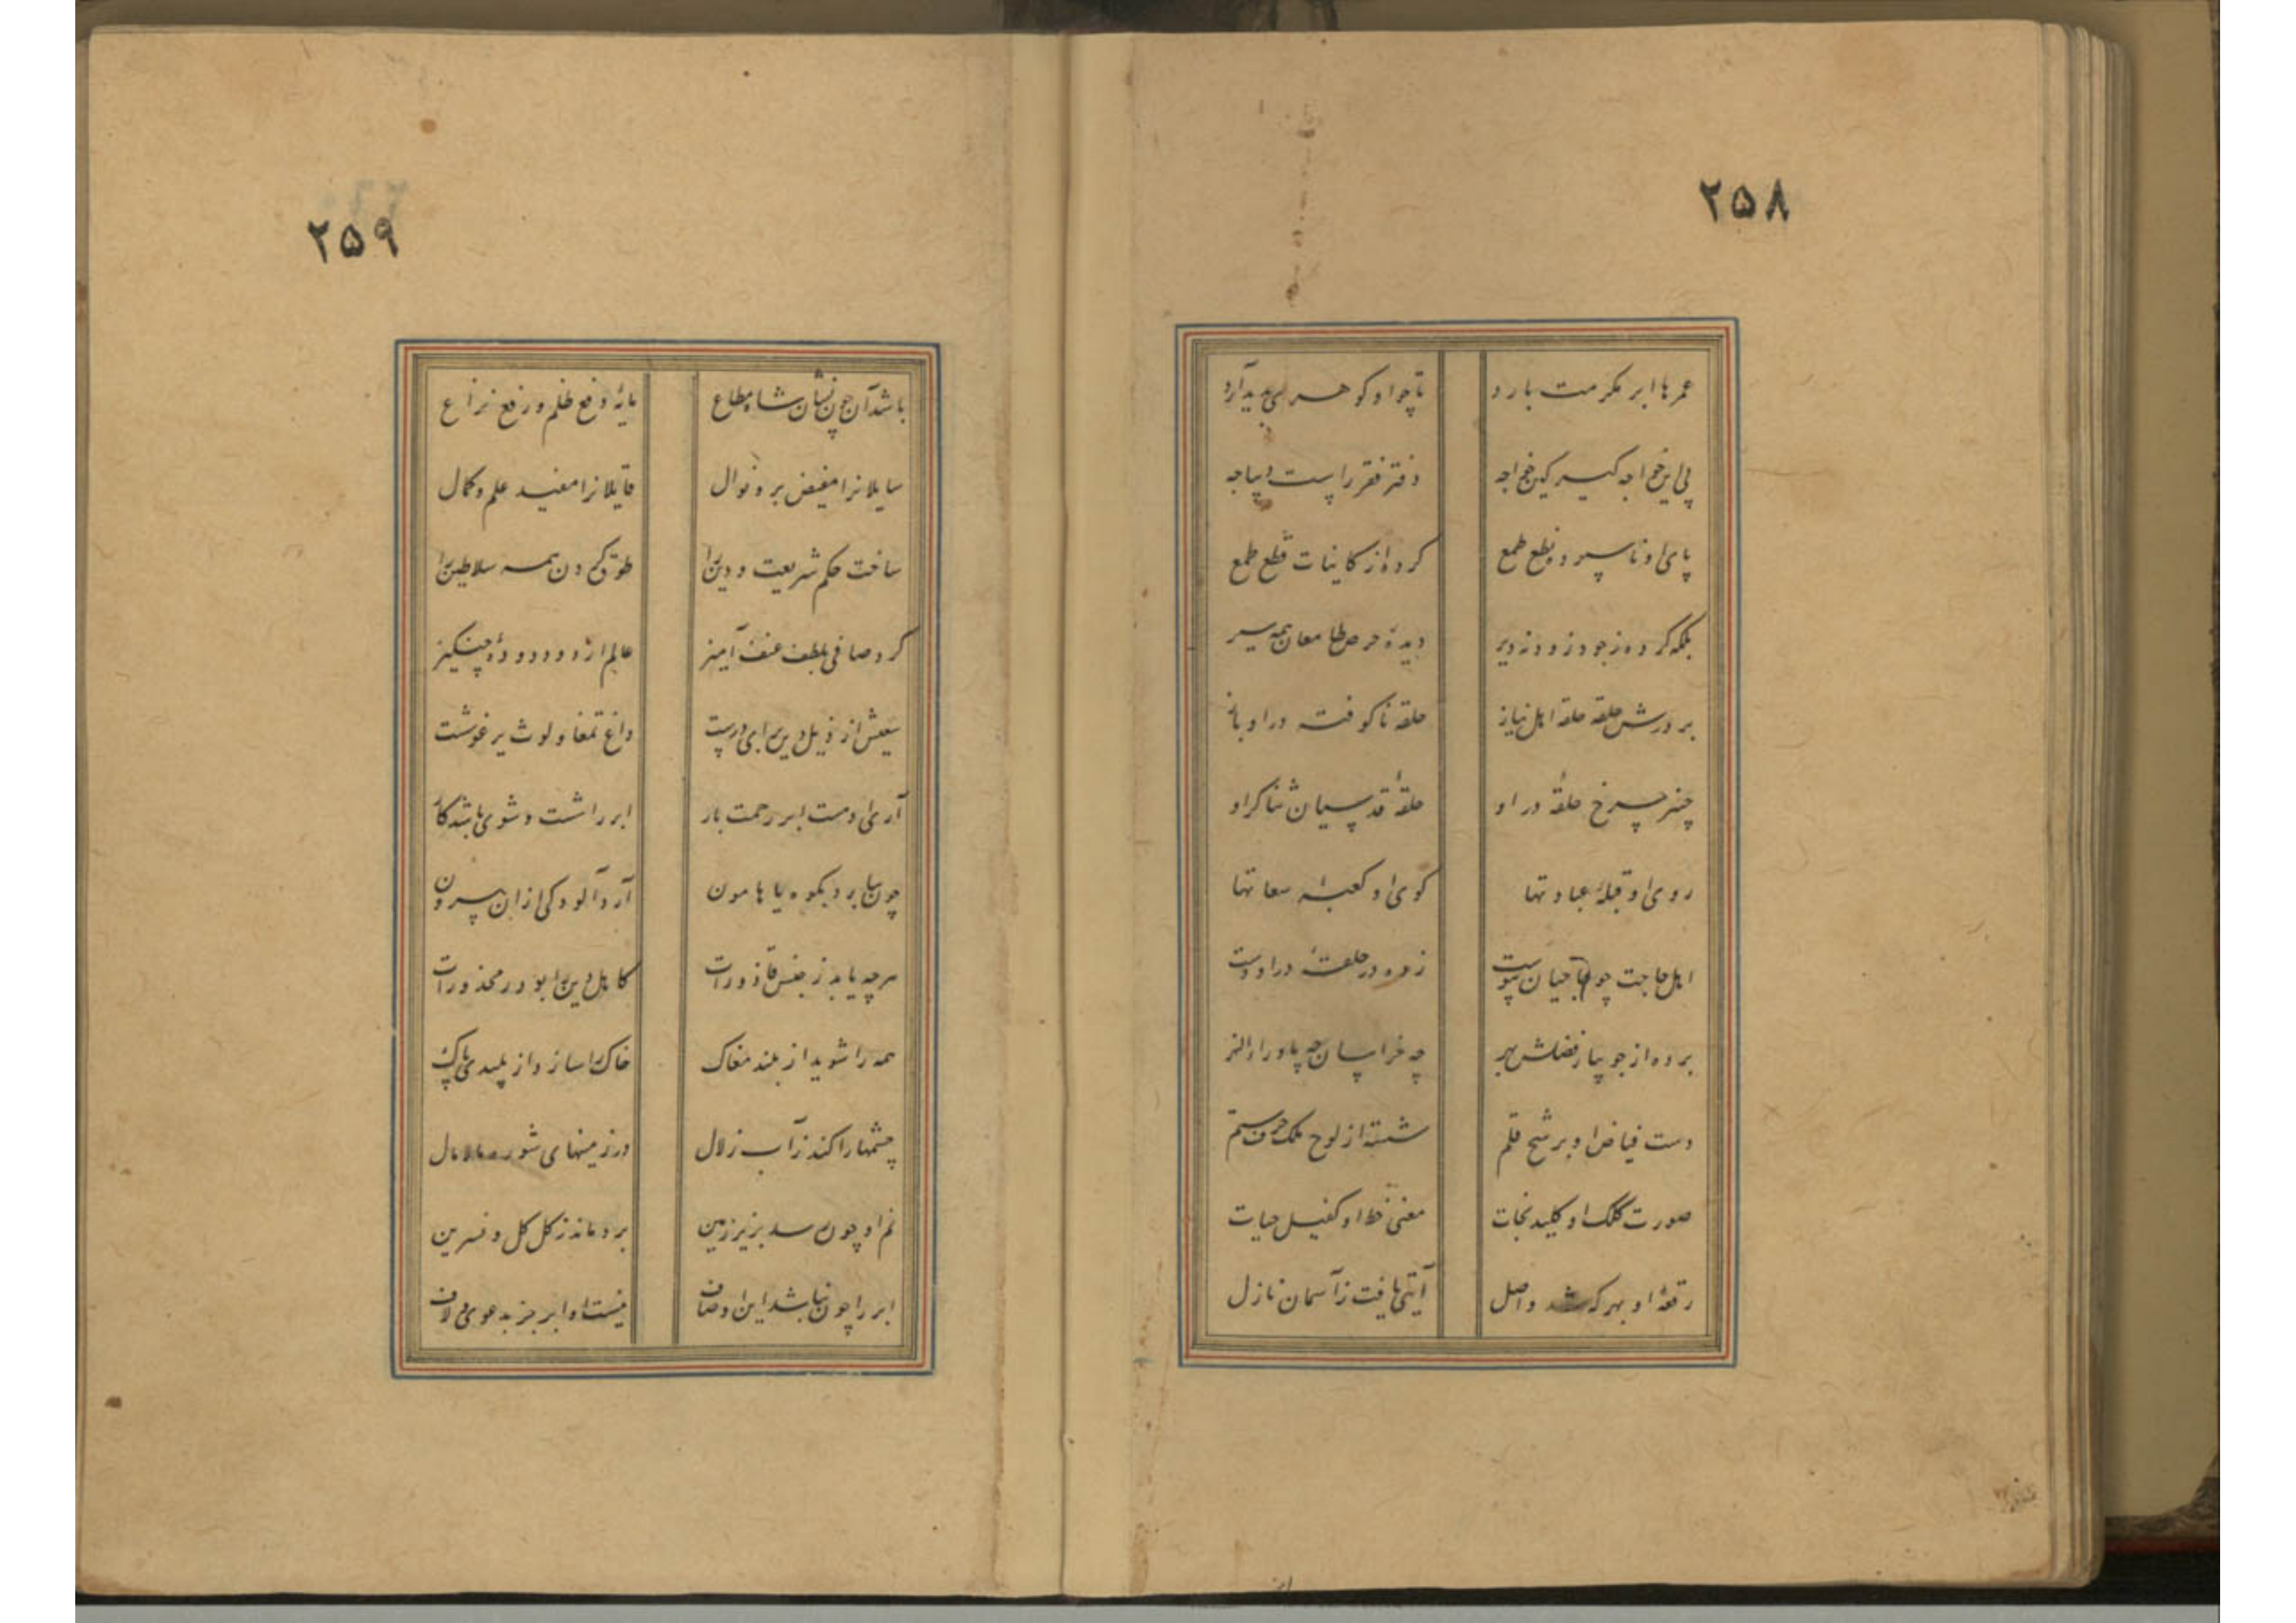 ۲۵۸
عمرها ابر مکرمت بارد تا چو او گوهری پدید آرد
پی این خواجه گیر کین خواجه دفتر فقر راست دیباجه
پای او ناسپرده نطع طمع کرده از کاینات قطع طمع
بلکه کرده ز جود زود نه دیر دیدهٔ حرص طامعان همه سیر
بر درش حلقه حلقه اهل نیاز حلقه ناکوفته در او باز
چنبر چرخ حلقهٔ در او حلقهٔ قدسیان ثناگر او
روی او قبلهٔ عبادتها کوی او کعبهٔ سعادتها
اهل حاجت چو حاجیان پیوست زده در حلقهٔ در او دست
برده از جویبار فضلش بهر چه خراسان چه ماوراء النهر
دست فیاض او برشح قلم شسته از لوح ملک حرف ستم
صورت کلک او کلید نجات معنی خط او کفیل حیات
رقعهٔ او بهر که شد واصل آیتی یافت ز آسمان نازل
۲۵۹
باشد آن چون نشان شاه مطاع مایهٔ دفع ظلم و رفع نزاع
سایلانرا مفیض بر و نوال قایلانرا مفید علم و کمال
ساخت حکم شریعت و دین را طوق گردن همه سلاطین را
کرد صافی بلطف عنف آمیز عالم از دود دودهٔ چنگیز
سعیش از ذیل دین برای درست داغ تمغا و لوث یرغو شست
آری او هست ابر رحمت بار ابر را شست و شوی باشد کار
چون ببارد بکوه یا هامون آرد آلودگی ازان بیرون
هرچه یابد ز جنس قاذورات کاهل دین را بود ز محذورات
همه را شوید از بلند و مغاک خاک را سازد از پلیدی پاک
چشمها را کند ز آب زلال در زمینهای شوره مالامال
نم او چون رسد بزیر زمین بردماند ز گل گل و نسرین
ابر را چون نباشد این اوصاف نیست او ابر جز بدعوی و لاف